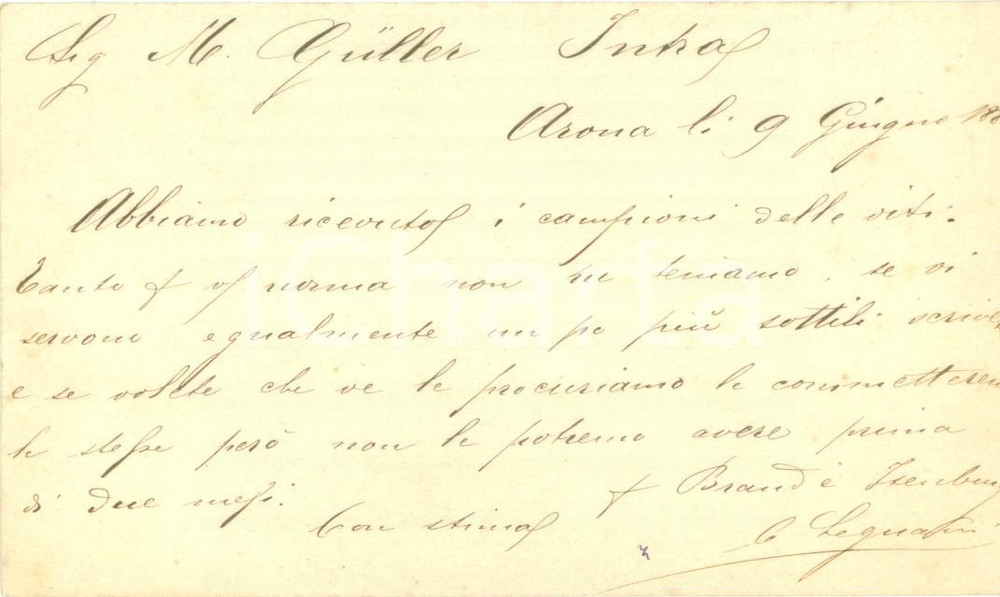 Sig M. Güller Intra
Arona li 9 Giugno 188
Abbiamo ricevuto i campioni delle viti.
Tanto p vs norma non ne teniamo, se vi
servono egualmente un po più sottili scrive
e se volete che ve le procuriamo le commetterem
le stesse però non le potremo avere prima
di due mesi.
p Brand è Isenburg
Con stima
C Legnani
iCharta